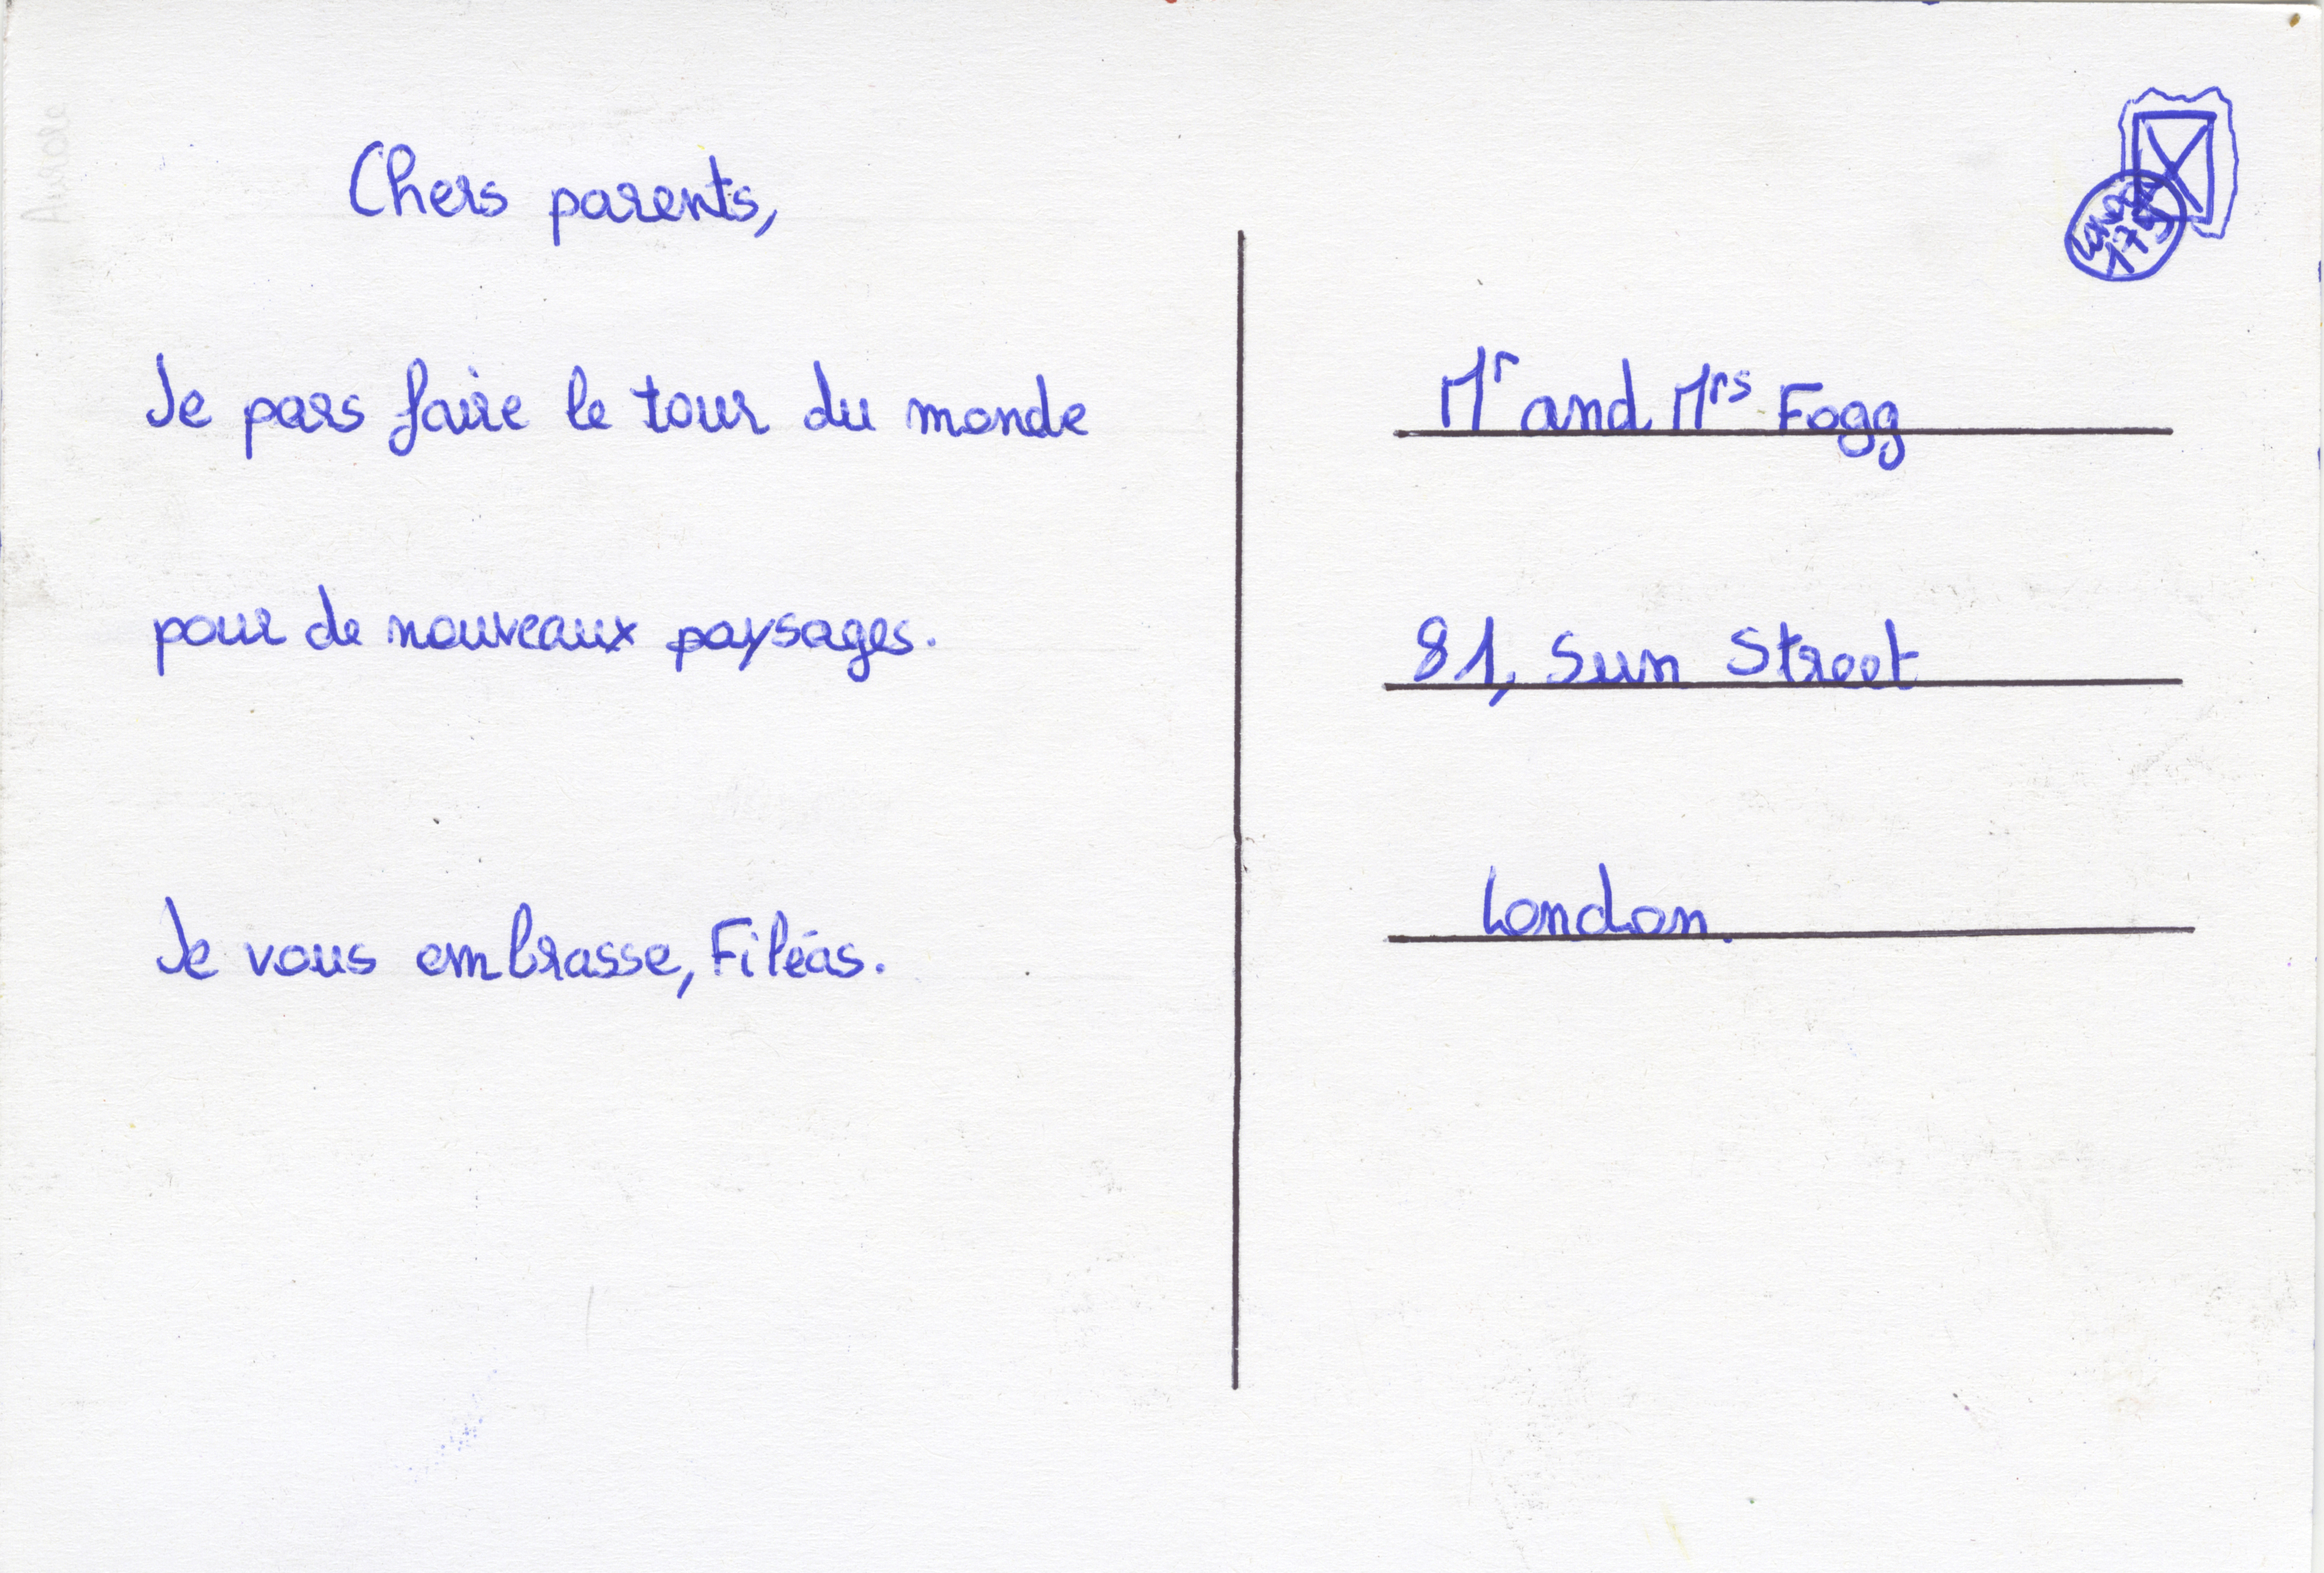 Chers parents,
Je pars faire le tour du monde
pour de nouveaux paysages.
Je vous embrasse, Filéas.
Mr and Mrs Fogg
81, Sun Street
London.